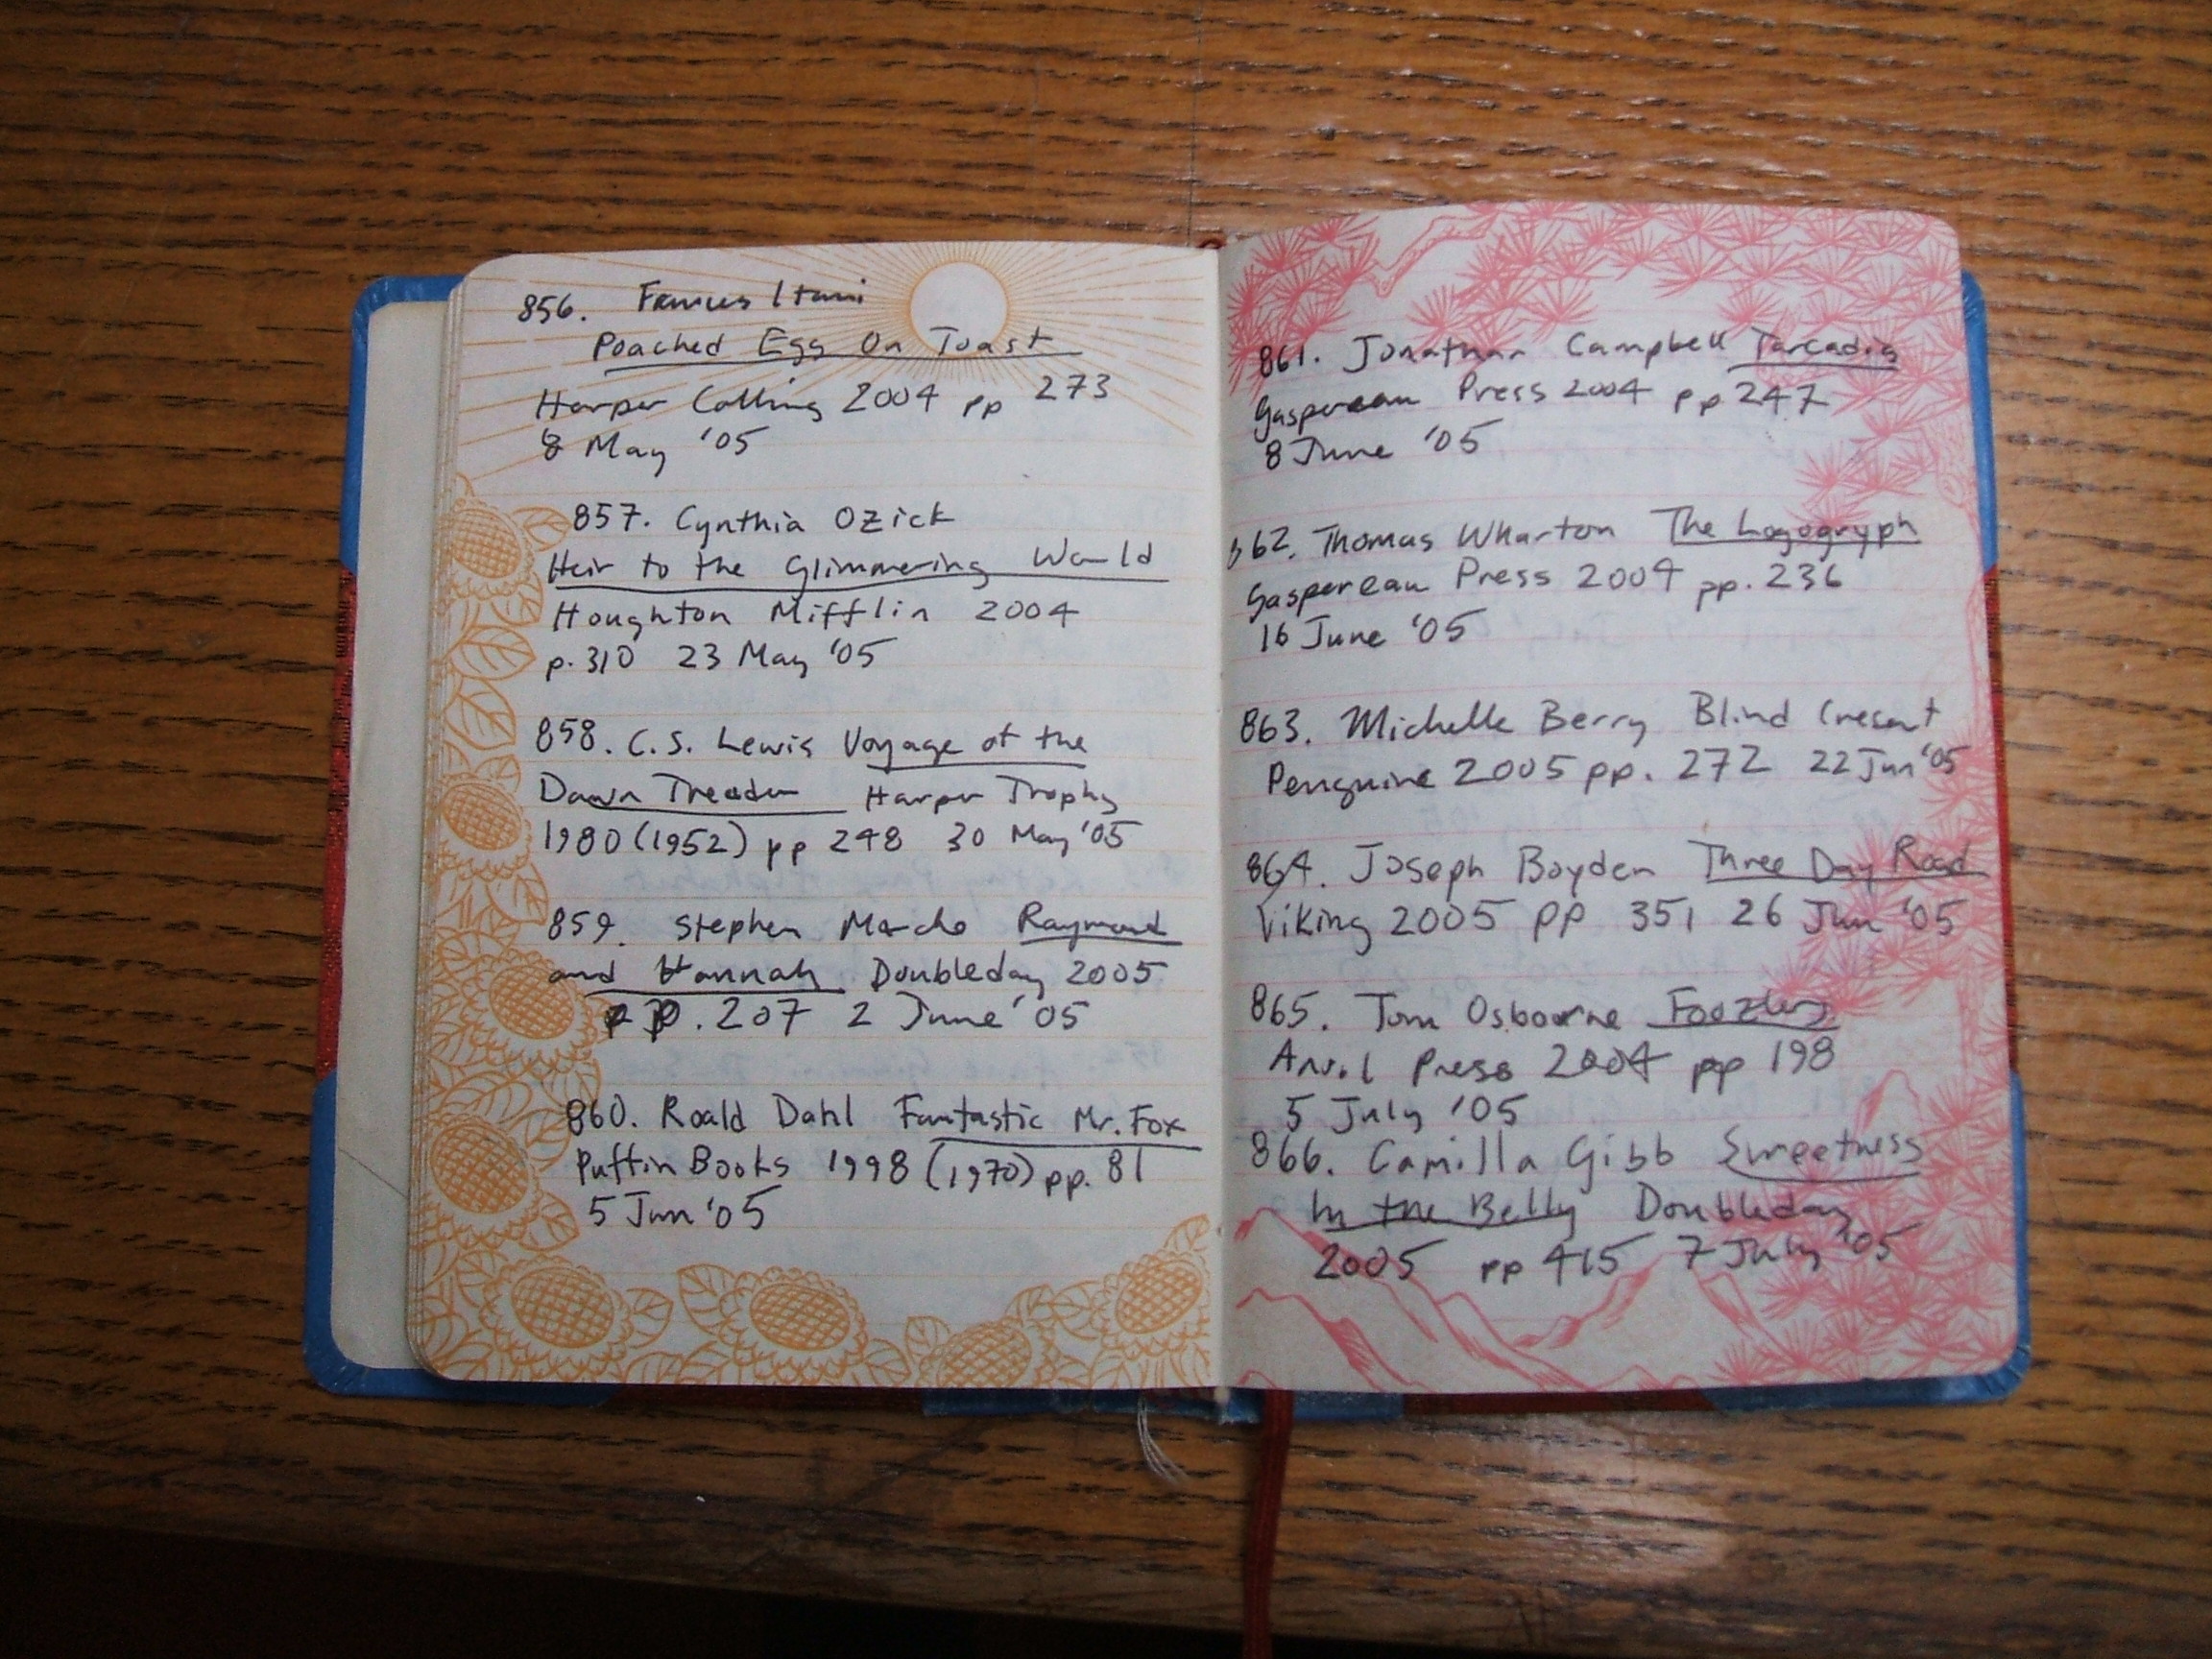 856. Frances Itani
Poached Egg On Toast
Harper Collins 2004 pp 273
8 May '05
857. Cynthia Ozick
Heir to the Glimmering World
Houghton Mifflin 2004
p. 310 23 May '05
858. C.S. Lewis Voyage of the
Dawn Treader Harper Trophy
1980 (1952) pp 248 30 May '05
859. Stephen Marche Raymond
and Hannah Doubleday 2005
pp. 207 2 June '05
860. Roald Dahl Fantastic Mr. Fox
Puffin Books 1998 (1970) pp. 81
5 Jun '05
861. Jonathan Campbell Tarcadia
Gaspereau Press 2004 pp 247
8 June '05
862. Thomas Wharton The Logogryph
Gaspereau Press 2004 pp. 236
16 June '05
863. Michelle Berry Blind Cresent
Penguine 2005 pp. 272 22 Jun '05
864. Joseph Boyden Three Day Road
Viking 2005 pp 351 26 Jun '05
865. Tom Osborne Foozlers
Anvil Press 2004 pp 198
5 July '05
866. Camilla Gibb Sweetness
In the Belly Doubleday
2005 pp 415 7 July '05